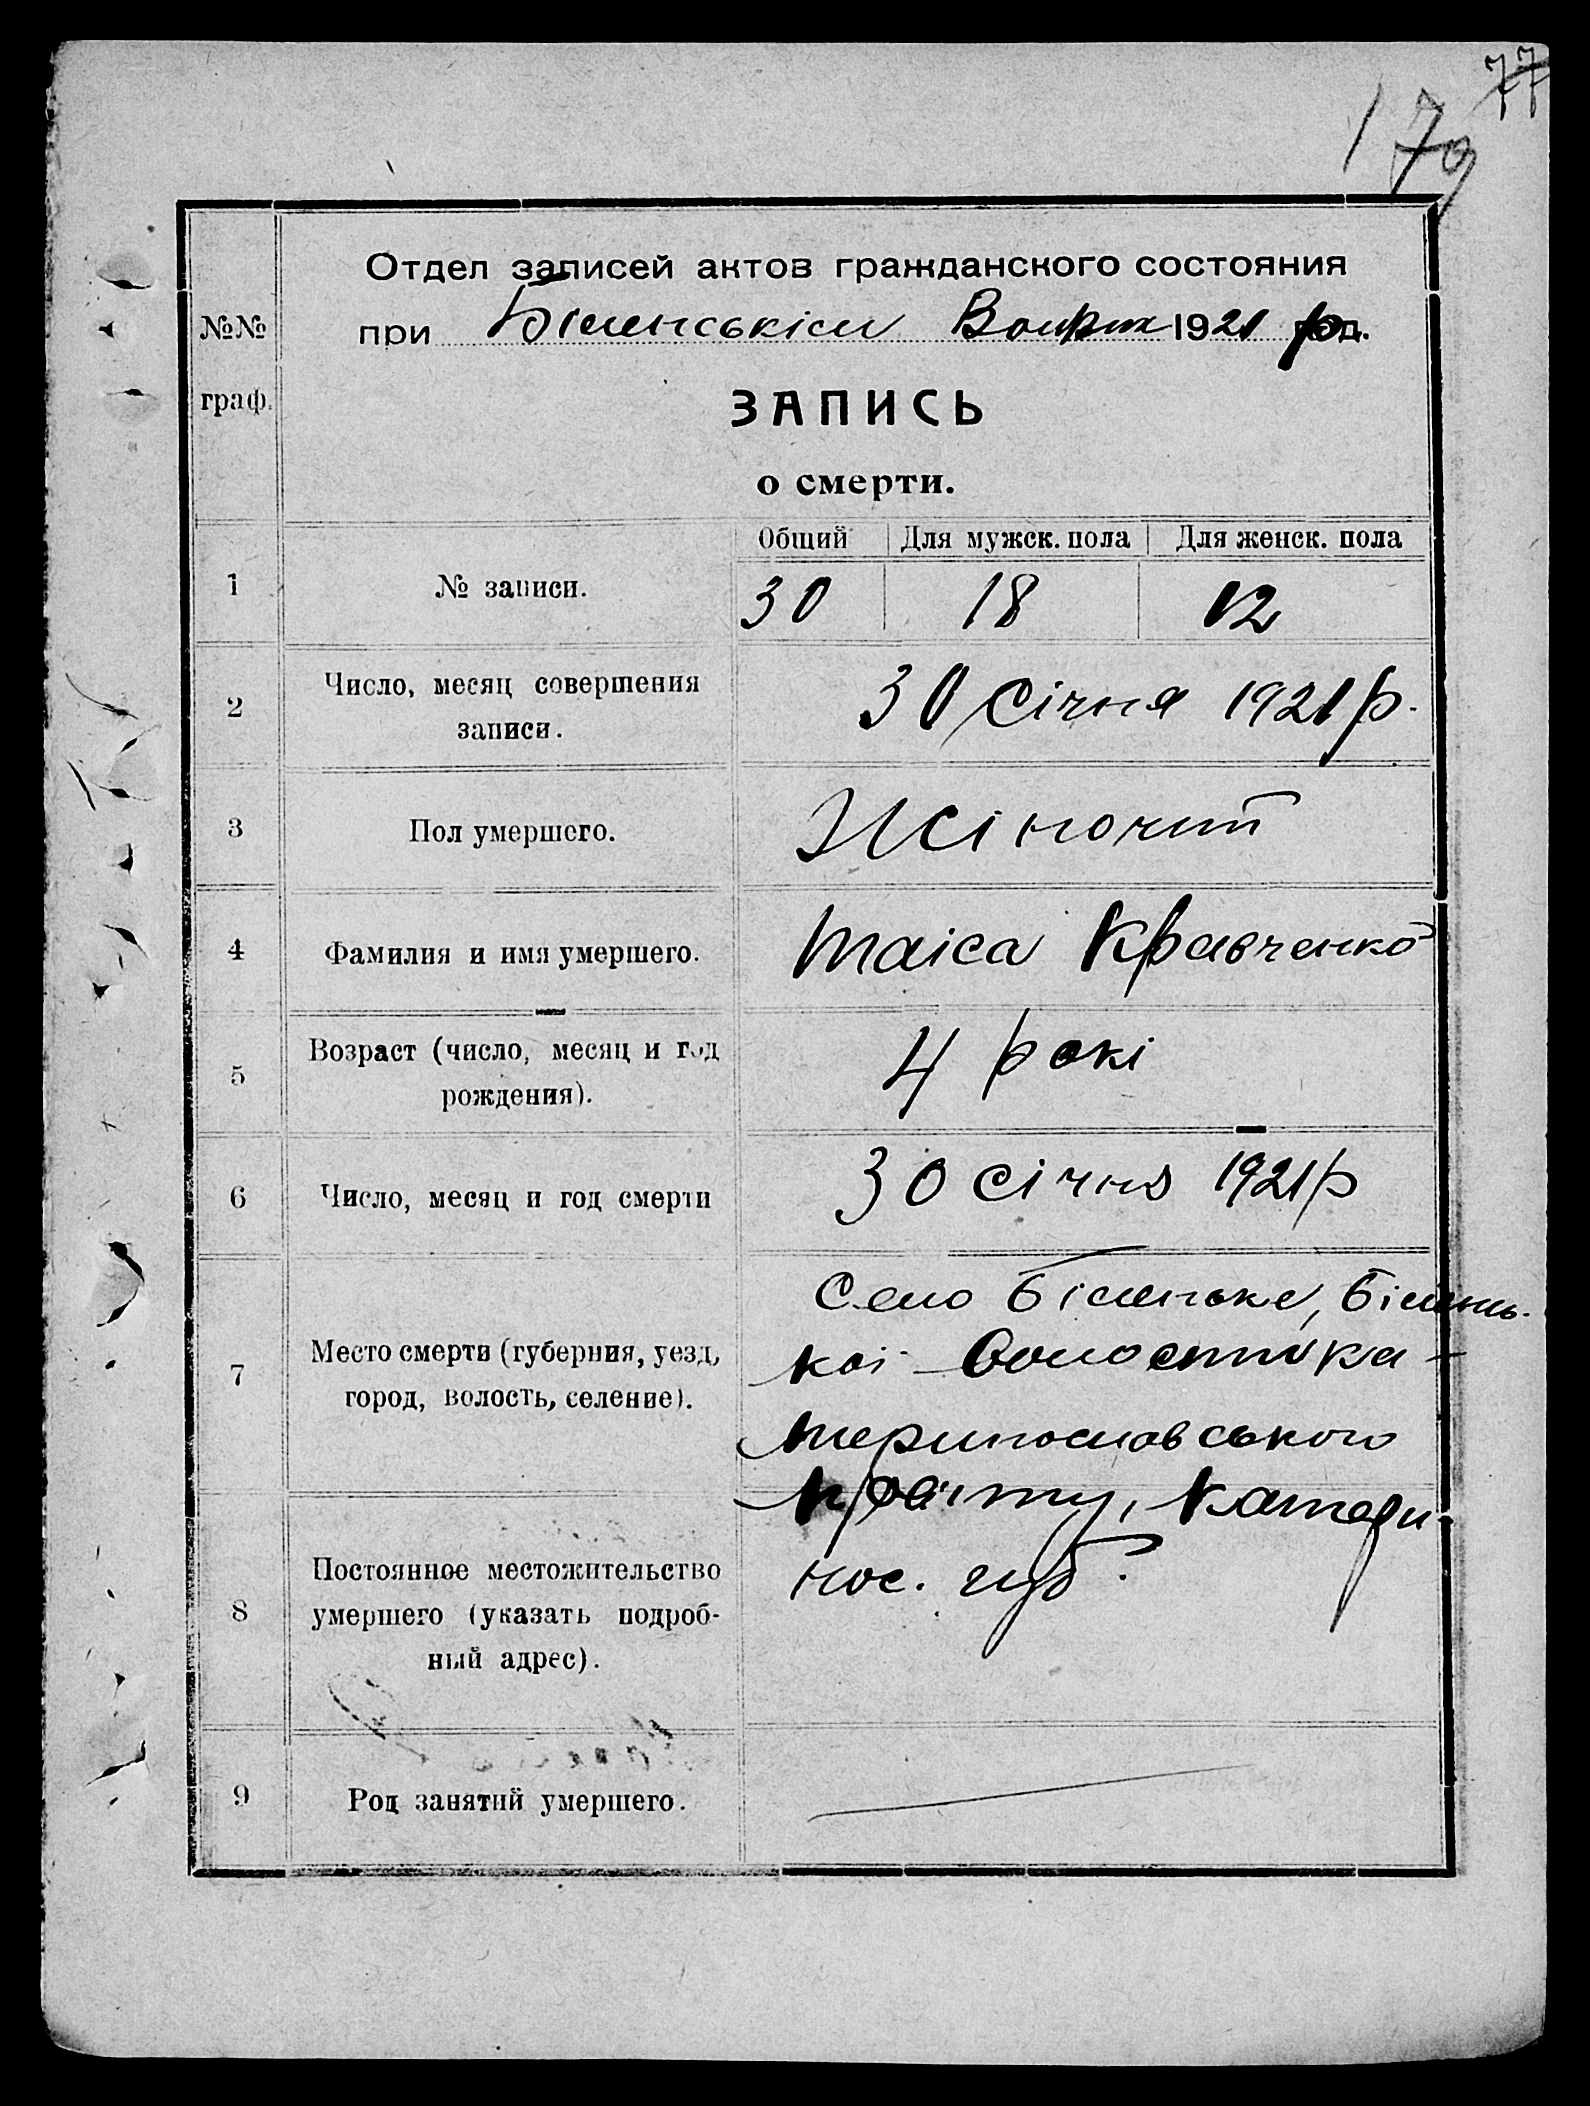 77
179
Отдел записей актов гражданского состояния
при Біленськім Волрик 1921 год.
№№ граф.
ЗАПИСЬ
о смерти.
Общий Для мужск. пола Для женск. пола
1 № записи. 30 18 12
2 Число, месяц совершения записи. 30 Січня 1921 р.
3 Пол умершего. Жіночит
4 Фамилия и имя умершего. Таіса Кравченко
5 Возраст (число, месяц и год рождения). 4 рокі
6 Число, месяц и год смерти 30 січня 1921 р
7 Место смерти (губерния, уезд, город, волость, селение).
Село Біленьке, Білень-
коі Волости Ка-
теринославського
повіту, Катери-
нос. губ.
8 Постоянное местожительство
умершего (указать подроб-
ный адрес).
9 Род занятий умершего.